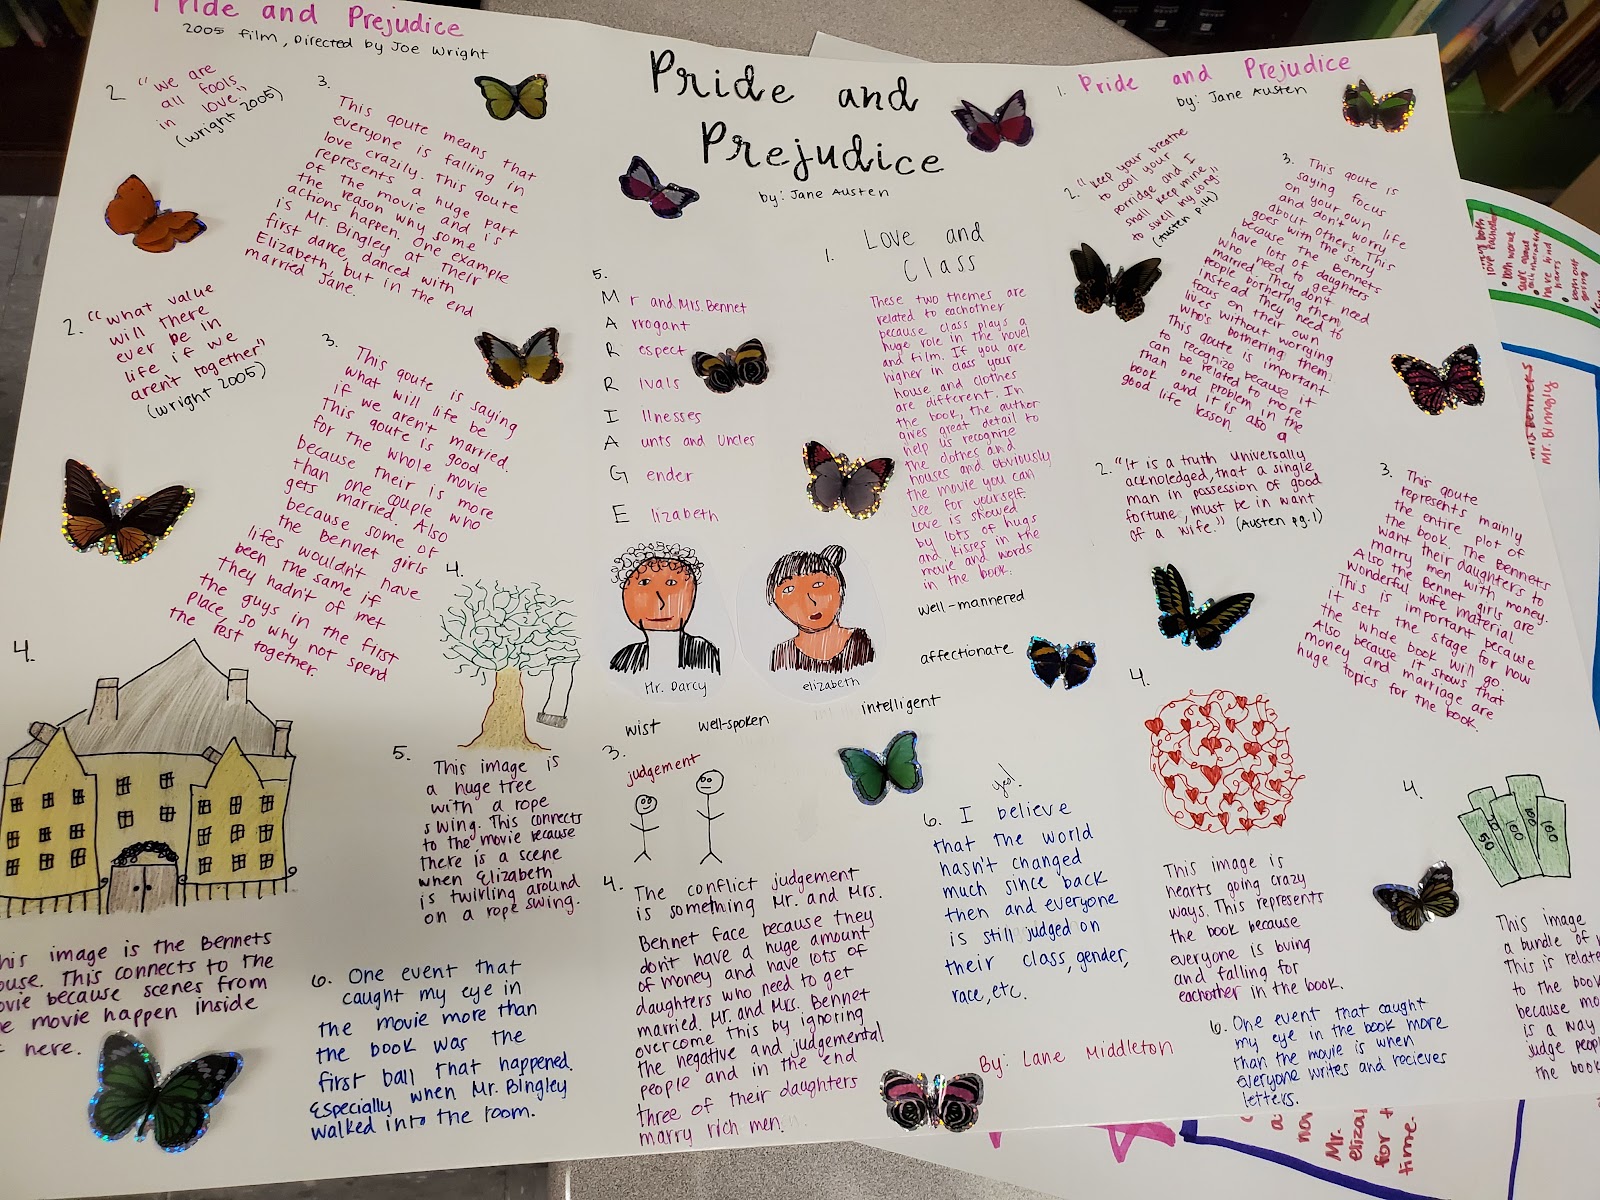 Pride and Prejudice
2005 film, Directed by Joe Wright
2 "we are
all fools
in love"
(Wright 2005)
3.
This qoute means that
everyone is falling in
love crazily. This qoute
represents a huge part
of the movie and is
the reason why some
actions happen. One example
is Mr. Bingley at Their
first dance, danced with
Elizabeth, but in the end
married Jane.
2. "what value
will there
ever be in
life if we
aren't together"
(Wright 2005)
3.
This qoute is saying
what will life be
if we aren't married.
This qoute is good
for the whole movie
because their is more
than one couple who
gets married. Also
because some of
the Bennet girls
lifes wouldn't have
been the same if
they hadn't of met
the guys in the first
place, so why not spend
the rest together.
4.
4.
his image is the Bennets
ouse. This connects to the
ovie because scenes from
e movie happen inside
here.
5.
This image is
a huge tree
with a rope
swing. This connects
to the movie because
there is a scene
when Elizabeth
is twirling around
on a rope swing.
6. One event that
caught my eye in
the movie more than
the book was the
first ball that happened.
Especially when Mr. Bingley
walked into the room.
Pride and
Prejudice
by: Jane Austen
5.
Mr and Mrs. Bennet
Arrogant
Respect
Rivals
Illnesses
Aunts and Uncles
Gender
Elizabeth
1.
Love and
Class
These two themes are
related to eachother
because class plays a
huge role in the novel
and film. If you are
higher in class your
house and clothes
are different. In
the book, the author
gives great detail to
help us recognize
the clothes and
houses and obviously
the movie you can
see for yourself.
Love is showed
by lots of hugs
and kisses in the
movie and words
in the book.
Mr. Darcy
elizabeth
well-mannered
affectionate
intelligent
wist well-spoken
3.
judgement
4. The conflict judgement
is something Mr. and Mrs.
Bennet face because they
don't have a huge amount
of money and have lots of
daughters who need to get
married. Mr. and Mrs. Bennet
overcome this by ignoring
the negative and judgemental
people and in the end
three of their daughters
marry rich men.
yes!
6. I believe
that the world
hasn't changed
much since back
then and everyone
is still judged on
their class, gender,
race, etc.
By: Lane Middleton
1. Pride and Prejudice
by: Jane Austen
2. "keep your breathe
to cool your
porridge and I
shall keep mine
to swell my song"
(Austen p.14)
3. This qoute is
saying focus
on your own life
and don't worry
about others. This
goes with the story
because the Bennets
have lots of daughters
who need to get
married. They don't need
people bothering them,
instead they need to
focus on their own
lives without worrying
who's bothering them.
This qoute is important
to recognize because it
can be related to more
than one problem in the
book and it is also a
good life lesson.
2. "It is a truth universally
acknoledged, that a single
man in possession of good
fortune, must be in want
of a wife." (Austen pg.1)
3. This qoute
represents mainly
the entire plot of
the book. The Bennets
want their daughters to
marry men with money.
Also the Bennet girls are
wonderful wife material.
This is important because
it sets the stage for how
the whole book will go.
Also because it shows that
money and marriage are
huge topics for the book.
4.
This image is
hearts going crazy
ways. This represents
the book because
everyone is loving
and falling for
eachother in the book.
4.
50
100
100
This image
a bundle of
This is relate
to the book
because mo
is a way
judge peop
the book
6. One event that caught
my eye in the book more
than the movie is when
everyone writes and recieves
letters.
love eachother
both
have kind
Mrs. Bennets
Mr. Bingly
Mr.
eliza
for t
time.